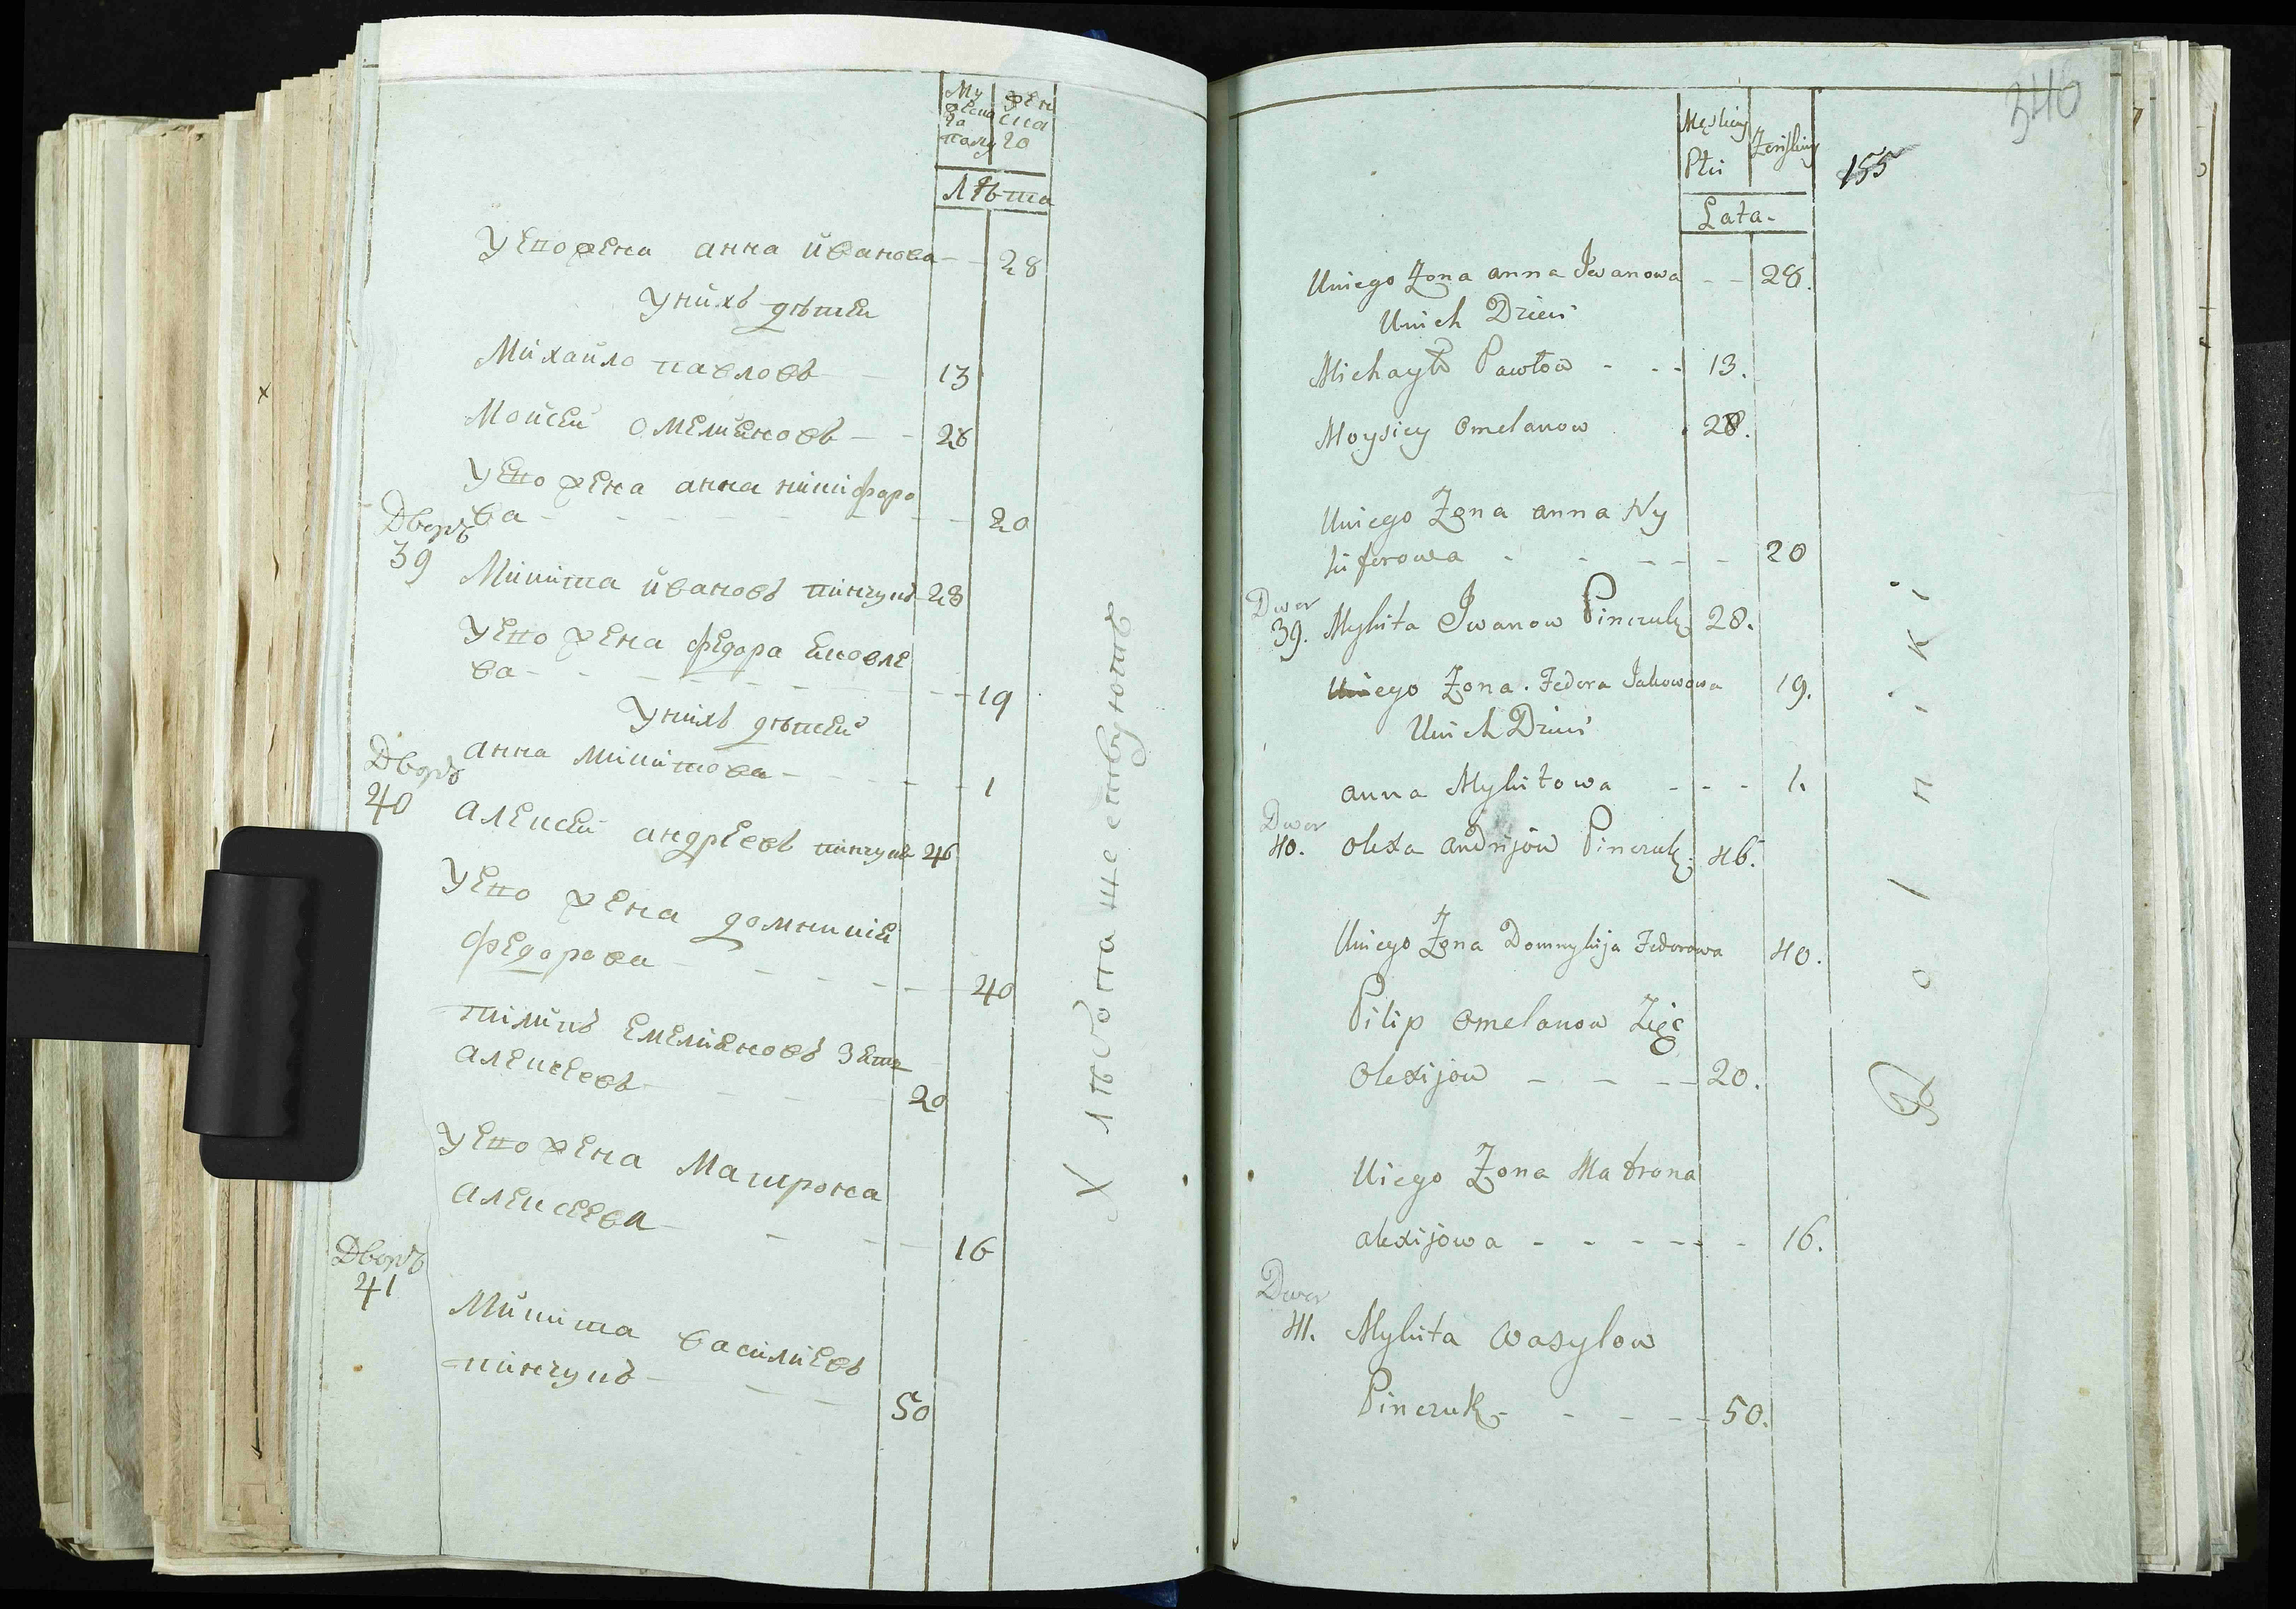 Му жен
жеска ска
га го
полу
Лѣта
У его жена анна иванова - - 28
У нихъ дѣтеи
Михаило павловъ - - 13
Моисеи омелияновъ - - 28
У его жена анна никифоро
ва - - - - - - - 20
Дворъ
39 Микита ивановъ пинчукъ - 28
У его жена федора яковле
ва - - - - - - - 19
У нихъ дѣтеи
анна микитова - - - - - 1
Дворъ
40 алексеи андреевъ пинчукъ 46
У его жена домникия
федорова - - - - - 40
пилипъ емелияновъ зять
алексеевъ - - - - 20
У его жена Матрона
алексеева - - - - 16
Дворъ
41 Микита василиевъ
пинчукъ - - - 50
Хлѣбопашествуютъ
340
Męskiey Żeńskiey
Płci
155
Lata -
Uniego Żona anna Iwanowa - - 28.
Unich Dzieci
Michayło Pawłow - - - 13.
Moysiey Omelanow . 28.
Uniego Żona anna Ny
kiferowa - - - - - 20
Dwor
39. Mykita Iwanow Pinczuk 28.
Uniego Żona. Fedora Jakowowa 19.
Unich Dzieci
anna Mykitowa - - - 1.
Dwor
40. Olexa andrijow Pinczuk. 46.
Uniego Żona Domnykija Fedorowa 40.
Pilip Omelanow Zięć
Olexijow - - - - 20.
Uiego Żona Matrona
alexijowa - - - - - - 16.
Dwor
41. Mykita Wasylow
Pinczuk - - - - - 50.
Rolniki